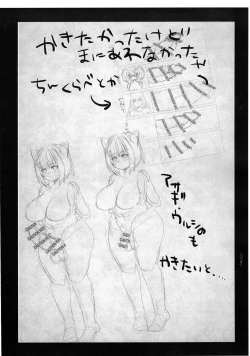 かきたかったけど
まにあわなかったヤツ
ちんくらべとか
アサギ
ウルシのも
かきたいと、…